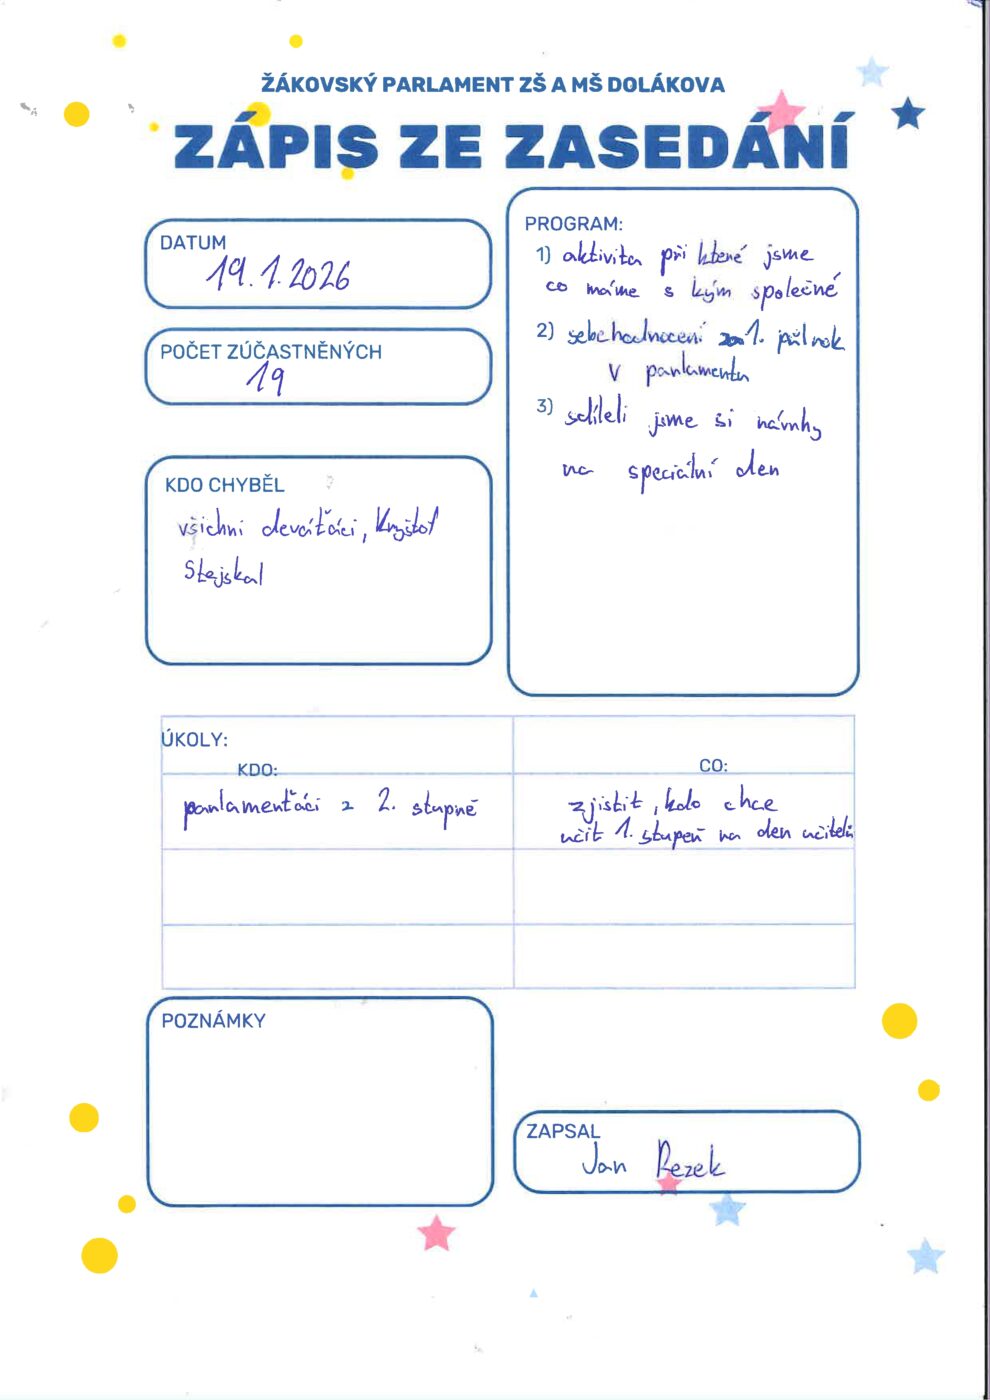 ŽÁKOVSKÝ PARLAMENT ZŠ A MŠ DOLÁKOVA
ZÁPIS ZE ZASEDÁNÍ
DATUM
19.1.2026
POČET ZÚČASTNĚNÝCH
19
KDO CHYBĚL
všichni deváťáci, Kryštof
Stejskal
PROGRAM:
1) aktivita při které jsme
co máme s kým společné
2) sebehodnocení 1. půlrok
v parlamentu
3) sdíleli jsme si návrhy
na speciální den
ÚKOLY:
KDO:
CO:
parlamenťáci z 2. stupně
zjistit, kdo chce
učit 1. stupeň na den učitelů
POZNÁMKY
ZAPSAL
Jan Rezek